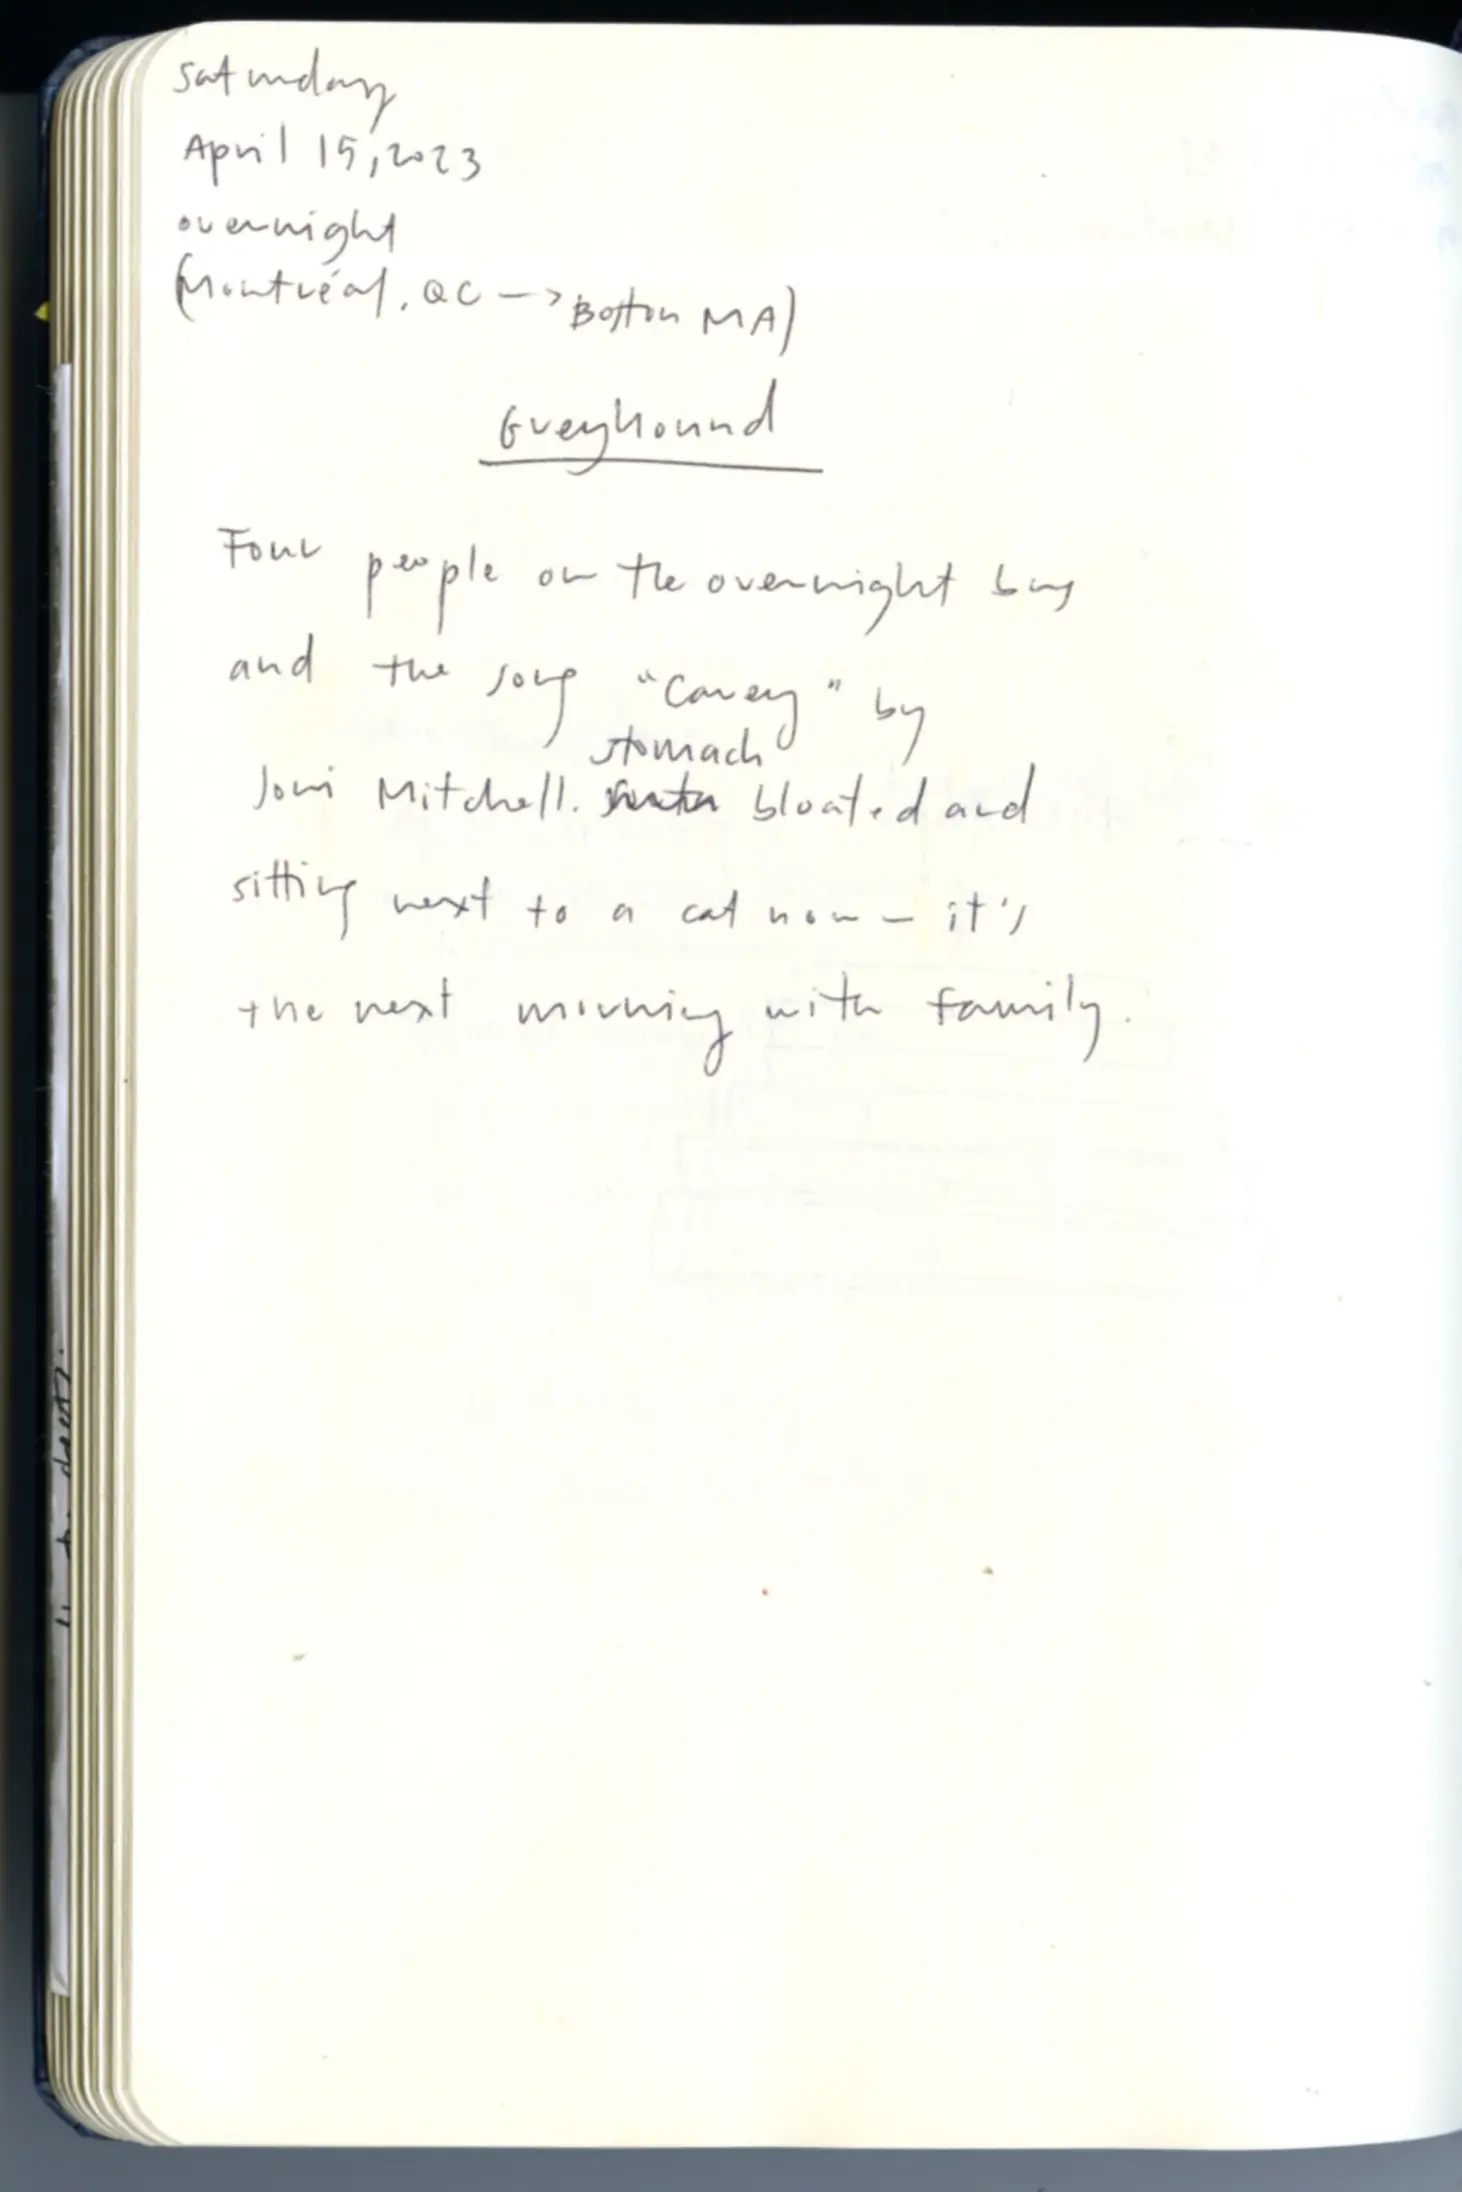 Saturday
April 15, 2023
overnight
(Montréal, QC → Boston MA)
Greyhound
Four people on the overnight bus
and the song "Carey" by
stomach
Joni Mitchell. bloated and
sitting next to a cat now – it's
the next morning with family.